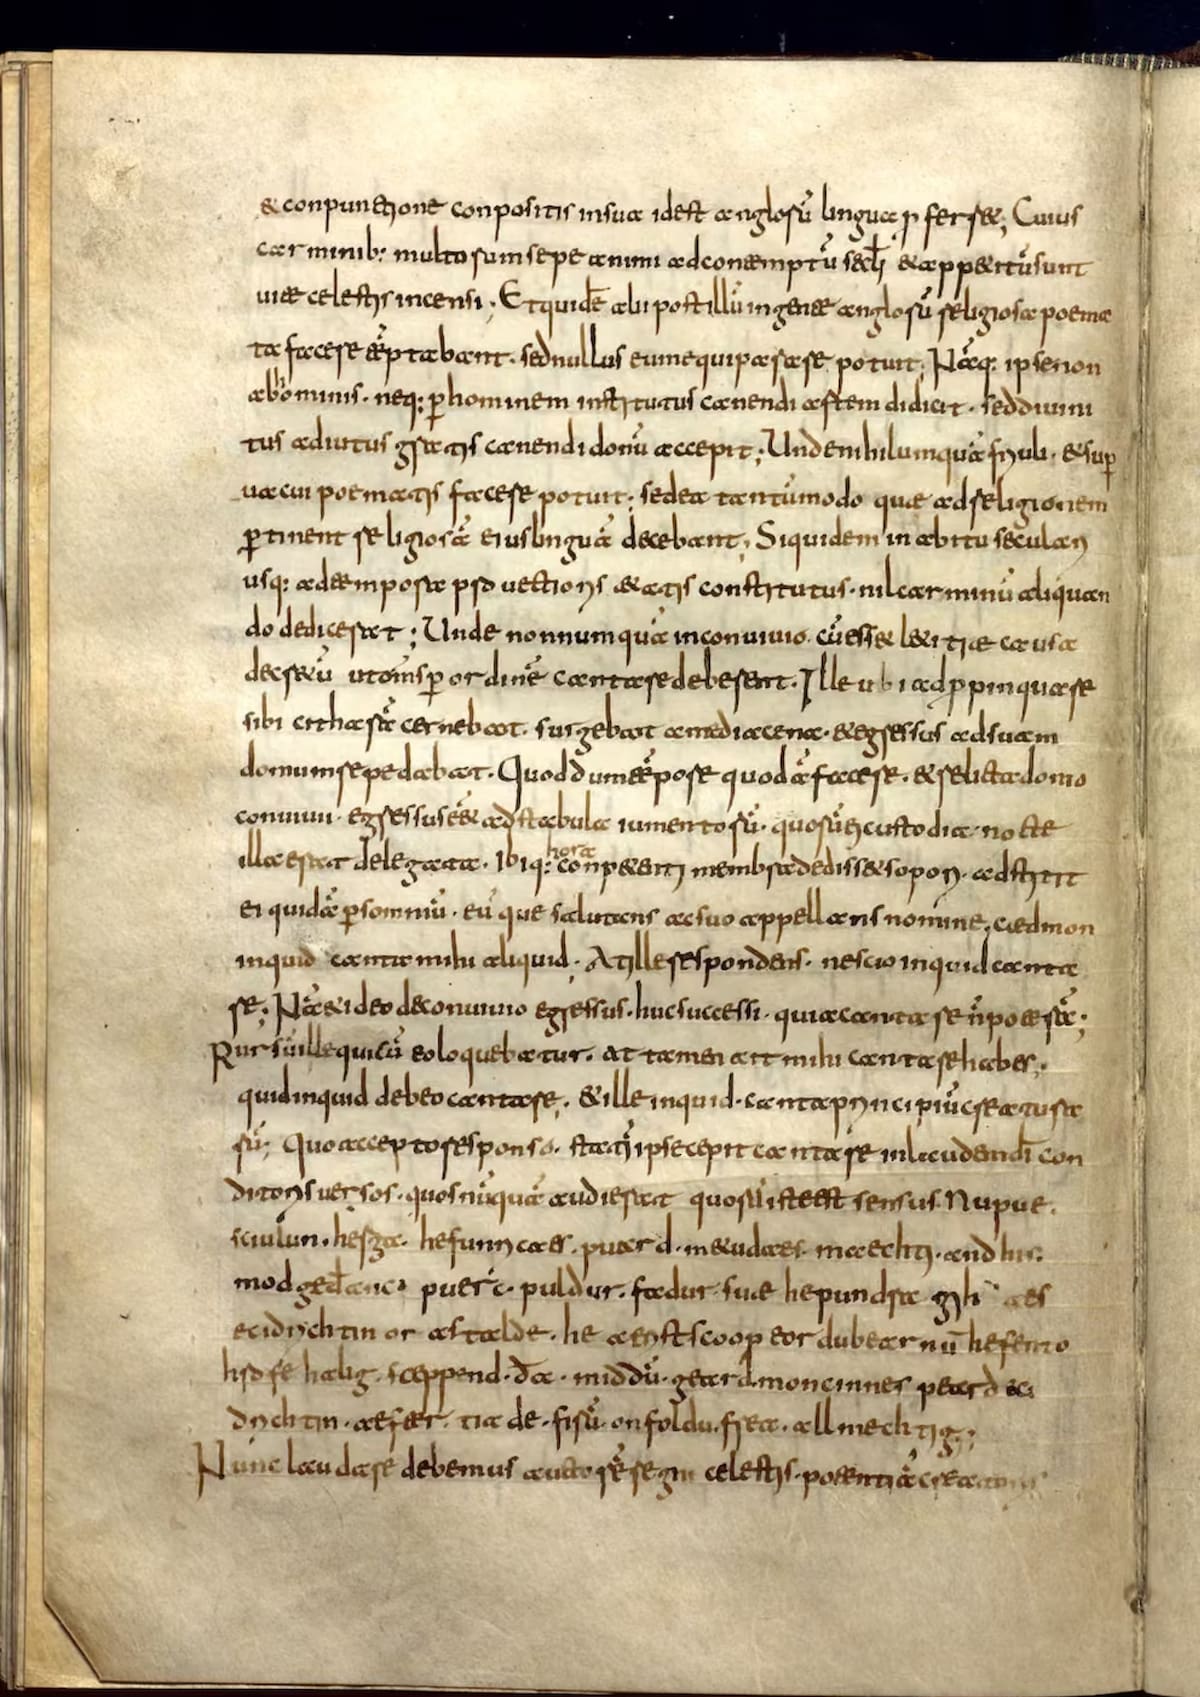 & conpunctione conpositis in sua id est anglorū lingua ꝓferret; Cuius
carminib: multorum sepe animi ad contemptū sƈli & appetitū sunt
uitæ celestis incensi; Et quidē alii post illū in gente anglorū religiosa poema
ta facere tēptabant. sed nullus eum equiparare potuit; Nāq: ipse non
ab hominis. neq: ꝑ hominem institutus canendi artem didicit. sed diuini
tus adiutus gratis canendi donū accepit; Unde nihil umquā friuoli. & suꝑ
uacui poematis facere potuit; sed ea tantūmodo quæ ad religionem
ꝑtinent religiosā eius linguā decebant; Siquidem in abitu seculari
usq: ad tempora prouectioris ætatis constitutus. nil carminū aliquan
do dedicerat; Unde nonnumquā in conuiuio. cū esset lætitiæ causa
decretū ut om̄s ꝑ ordinē cantare deberent. Ille ubi adꝓpinquare
sibi citharā cernebat. surgebat a media cena. & egressus ad suam
domum repedabat. Quod dum tēpore quodā faceret. & relicta domo
conuiui. egressus ēet ad stabula iumentorū. quorū ei custodia. nocte
illa erat delegata. Ibiq: hora conpetenti membra dedisset sopori. adstitit
ei quidā ꝑ somniū. eūque salutans ac suo appellans nomine. cædmon
inquid canta mihi aliquid. At ille respondens. nescio inquid canta
re; Nā et ideo de conuiuio egressus. huc successi. quia cantare n̄ poterā;
Rursū ille qui cū eo loquebatur. at tamen ait mihi cantare habes;
quid inquid debeo cantare. & ille inquid. canta principiū creatura
rū; Quo accepto responso. statī ipse cepit cantare in laudem dī con
ditoris uersos. quos nūquā audierat quorū iste est sensus. Nu pue.
sciulun. herga. hefunricaes. puard. metudaes. maechti. and his.
modgeðanc. puerc. puldur. fadur. suæ he pundra gih aes
eci drichtin or astalde. he ærist scoop eordu bearnū hefen to
hrofe halig. sceppend. ða. middū. geard. moncinnes peard eci
drichtin. æfter. tiade. firū. on foldu. frea. allmechtig;
Nunc laudare debemus auctorē regni celestis. potentiā creatoris